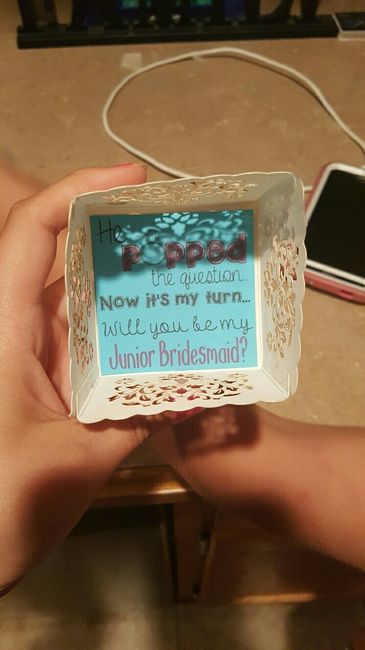 He
popped
the question.
Now it's my turn...
Will you be my
Junior Bridesmaid?